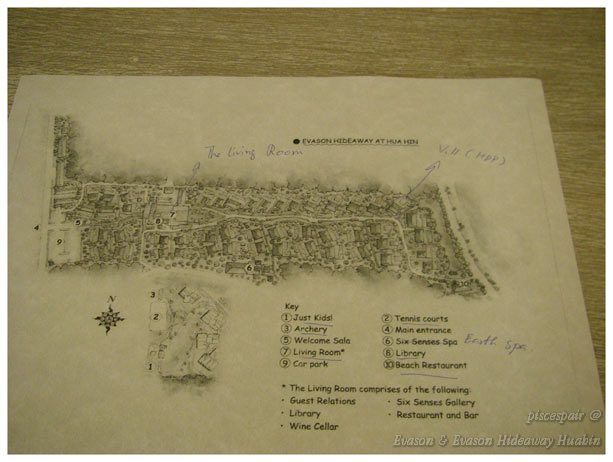 EVASON HIDEAWAY AT HUA HIN
The Living Room
V.11 (MPP)
7
8
5
4
9
6
10
N
3
2
1
Key
① Just Kids!
② Tennis courts
③ Archery
④ Main entrance
⑤ Welcome Sala
⑥ Six Senses Spa Earth Spa
⑦ Living Room*
⑧ Library
⑨ Car park
⑩ Beach Restaurant
* The Living Room comprises of the following:
• Guest Relations
• Six Senses Gallery
• Library
• Restaurant and Bar
• Wine Cellar
piscespair @
Evason & Evason Hideaway Huahin